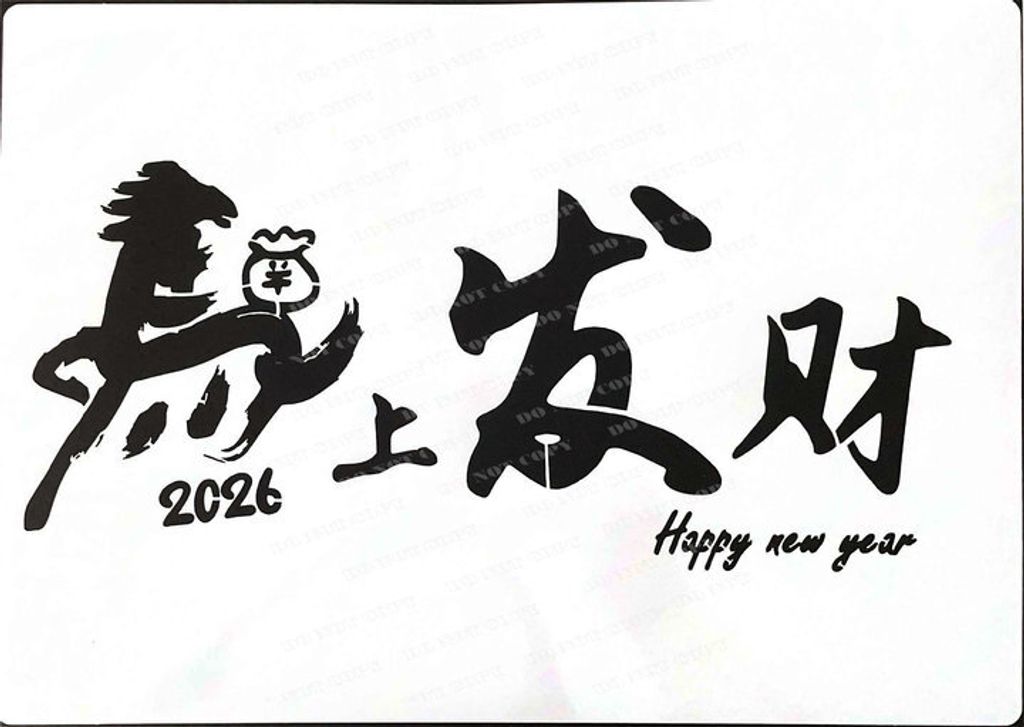 马上发财
¥
2026
Happy new year
DO NOT COPY